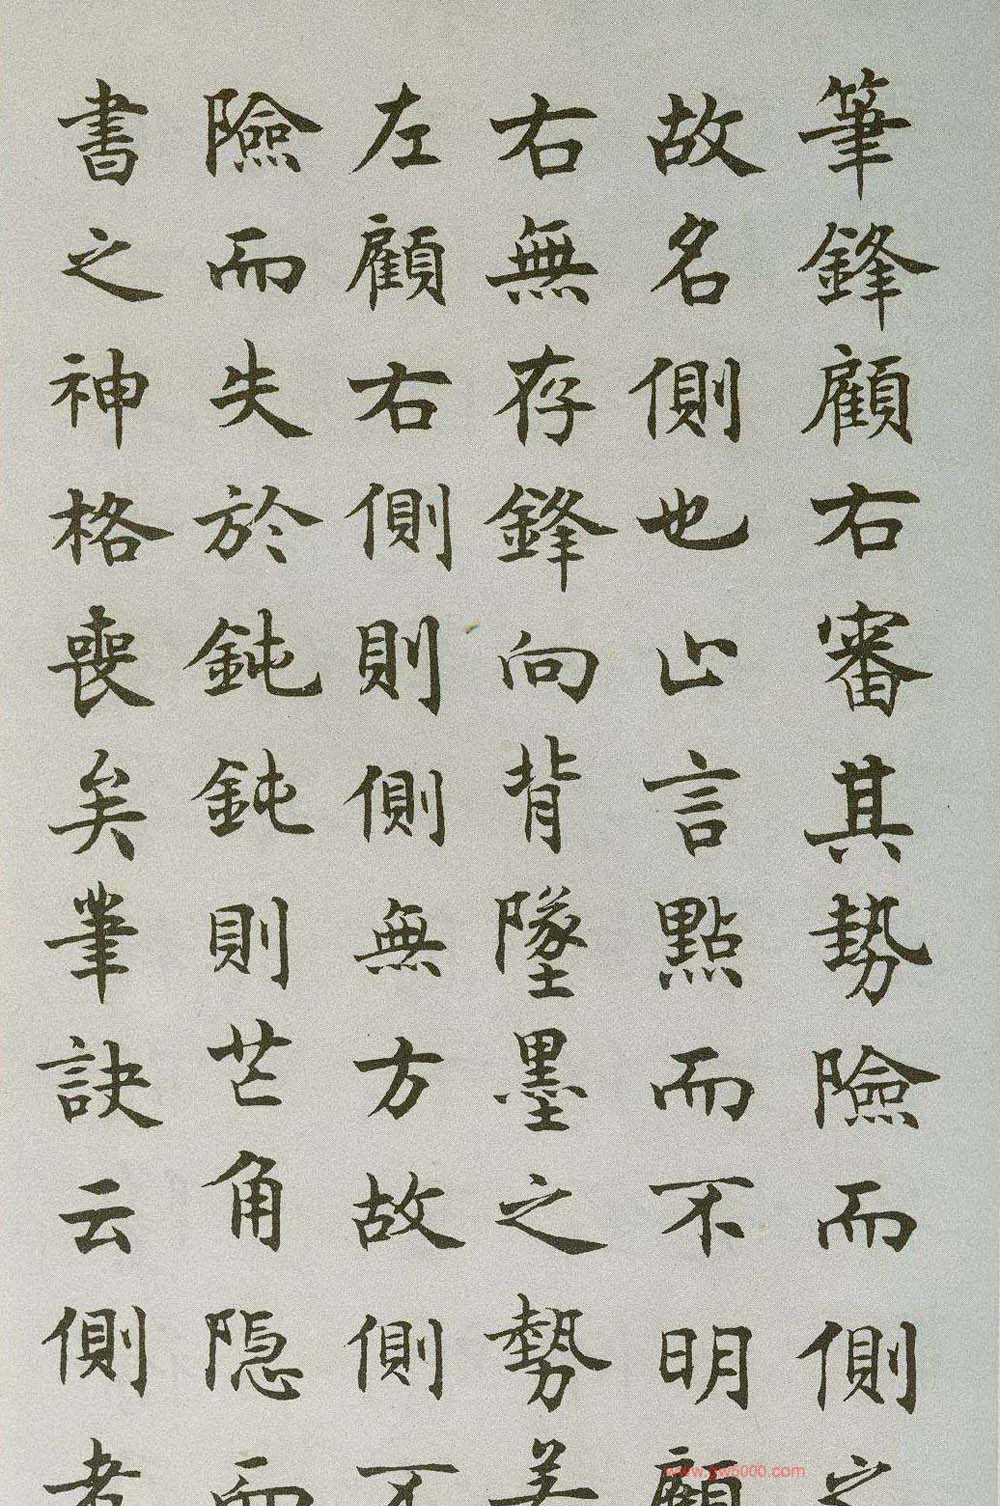 筆鋒顧右審其勢險而側之
故名側也止言點而不明顧
右無存鋒向背墜墨之勢若
左顧右側則側無方故側不
險而失於鈍鈍則芒角隐而
書之神格喪矣筆訣云側者
www.yw6000.com